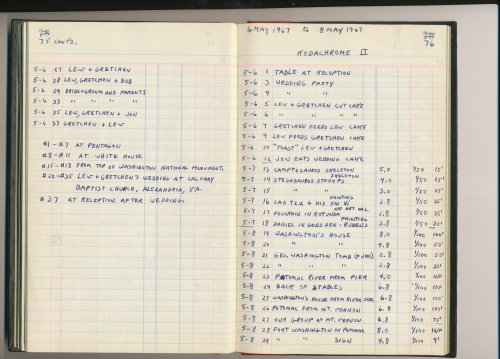 75 CONT'D.
5-6 27 LEW & GRETCHEN
5-6 28 LEW, GRETCHEN & BOB
5-6 29 BRIDE & GROOM AND PARENTS
5-6 33 " " " "
5-6 35 LEW, GRETCHEN & JON
5-6 37 GRETCHEN & LEW
#1-#7 AT PENTAGON
#8-#11 AT WHITE HOUSE
#15-#18 FROM TOP OF WASHINGTON NATIONAL MONUMENT,
#20-#35 LEW & GRETCHEN'S WEDDING AT CALVARY
BAPTIST CHURCH, ALEXANDRIA, VA.
#37 AT RECEPTION AFTER WEDDING.
6 MAY 1967 to 8 MAY 1967
76
KODACHROME II
5-6 1 TABLE AT RECEPTION
5-6 3 WEDDING PARTY
5-6 4 " "
5-6 5 LEW & GRETCHEN CUT CAKE
5-6 6 " "
5-6 7 GRETCHEN FEEDS LEW CAKE
5-6 9 LEW FEEDS GRETCHEN CAKE
5-6 10 "TOAST" LEW & GRETCHEN
5-6 12 JON EATS WEDDING CAKE
5-7 13 CAMPTOSAURUS SKELETON 5.0 1/50 15'
5-7 14 STEGOSAURUS STENOPS SKELETON 4.0 1/50 25'
5-7 15 " " 3.0 1/50 25'
5-7 16 LAO TZU & HIS PAINTING 2.8 1/50 35'
5-7 17 FOUNTAIN IN ROTUNDA NAT ART GAL. 2.8 1/50 35'
5-7 18 DANIEL IN LIONS DEN - RUBENS PAINTING 3.8 1/50 20'
5-8 19 WASHINGTON'S HOUSE 8.0 1/100
5-8 20 " " 4.0 1/100 50'
5-8 21 GEO. WASHINGTON TOMB 2.8 1/100 50'
5-8 22 " " 2.8 1/100 35'
5-8 23 POTOMAC RIVER FROM PIER 4.0 1/100
5-8 24 BACK OF STABLES 6.8 1/100 100'
5-8 25 WASHINGTON'S HOUSE FROM RIVER SIDE 6.8 1/100 100'
5-8 26 POTOMAC FROM MT. VERNON 6.8 1/100
5-8 27 OUR GROUP AT MT. VERNON 6.8 1/100 75'
5-8 28 FORT WASHINGTON ON POTOMAC 8.0 1/100
5-8 29 " " SIGN 4.8 1/100 9'